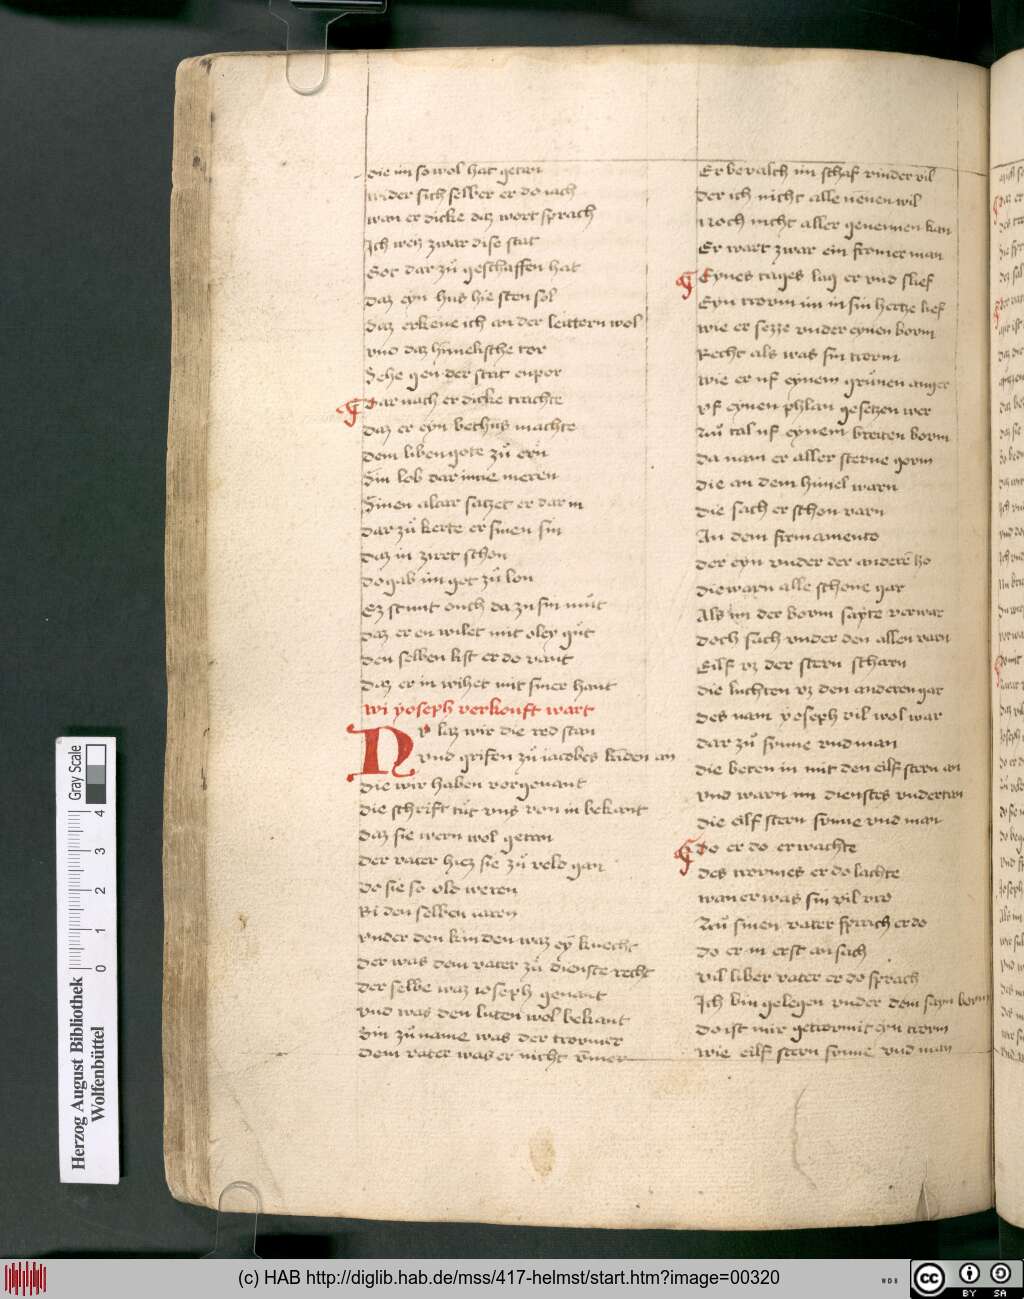 die im so wol hat getan
wider sich selber er do nach
wan er dicke daz wort sprach
Ich weiz zwar dise stat
Got dar zuͦ geschaffen hat
daz eyn hus hie sten sol
Daz erkene ich an der leittern wol
vnd daz himelische tor
Sehe gen der stat enpor
Dar nach er dicke trachte
daz er eyn bethus machte
dem liben gote zuͦ ern
Sin lob dar inne meren
Sinen altar satzet er dar in
dar zuͦ kerte er sinen sin
daz in ziret schon
do gab im got zuͦ lon
Ez stunt ouch da zu sin muͦt
daz er en wihet mit oley guͦt
den selben list er do vant
daz er in wihet mit siner hant
wi yoseph verkouft wart
Nv laz wir die red stan
vnd grifen zuͦ iacobes kinden an
die wir haben vorgenant
die schrift tuͦt vns von in bekant
daz sie wern wol getan
der vater hiez sie zuͦ velde gan
do sie so olde weren
Bi den selben iaren
vnder den kinden waz eyn knecht
der was dem vater zuͦ dienste recht
der selbe waz ioseph genant
vnd was den luten wol bekant
Sin zuͦ name was der troumer
dem vater was er nicht
Er bevalch im schaf rinder vil
der ich nicht alle nennen wil
Noch nicht aller genennen kan
Er wart zwar ein fromer man
Eynes tages lag er vnd slief
Eyn trovm im in sin hertze lief
wie er sezze vnder eynen bovm
Recht als was sin trovm
wie er uf eynem gruͤnen anger
vf eynen phlan gesetzen wer
Nuͦ tal uf eynem breiten bovm
da nam er aller sterne govm
die an dem himel warn
die sach er schon varn
An dem firmamento
der eyn vnder der anderen ho
die warn alle schone gar
Als im der bovm sayte verwar
doch sach vnder den allen varn
Eilf vz der stern scharn
die luchten vz den anderen gar
des nam yoseph vil wol war
dar zuͦ sunne vnd man
die beten in mit den eilf stern an
vnd warn im dienstes vndertan
die eilf stern sunne vnd man
Do er do erwachte
des trovmes er do lachte
wan er was sin vil vro
Zuͦ sinen vater sprach er do
do er in erst an sach
vil liber vater er do sprach
Ich bin gelegen vnder dem bovm
do ist mir getrovmit eyn trovm
wie eilf stern sunne vnd man
Herzog August Bibliothek
Wolfenbüttel
Gray Scale
0 1 2 3 4
(c) HAB http://diglib.hab.de/mss/417-helmst/start.htm?image=00320
WDB
cc BY SA